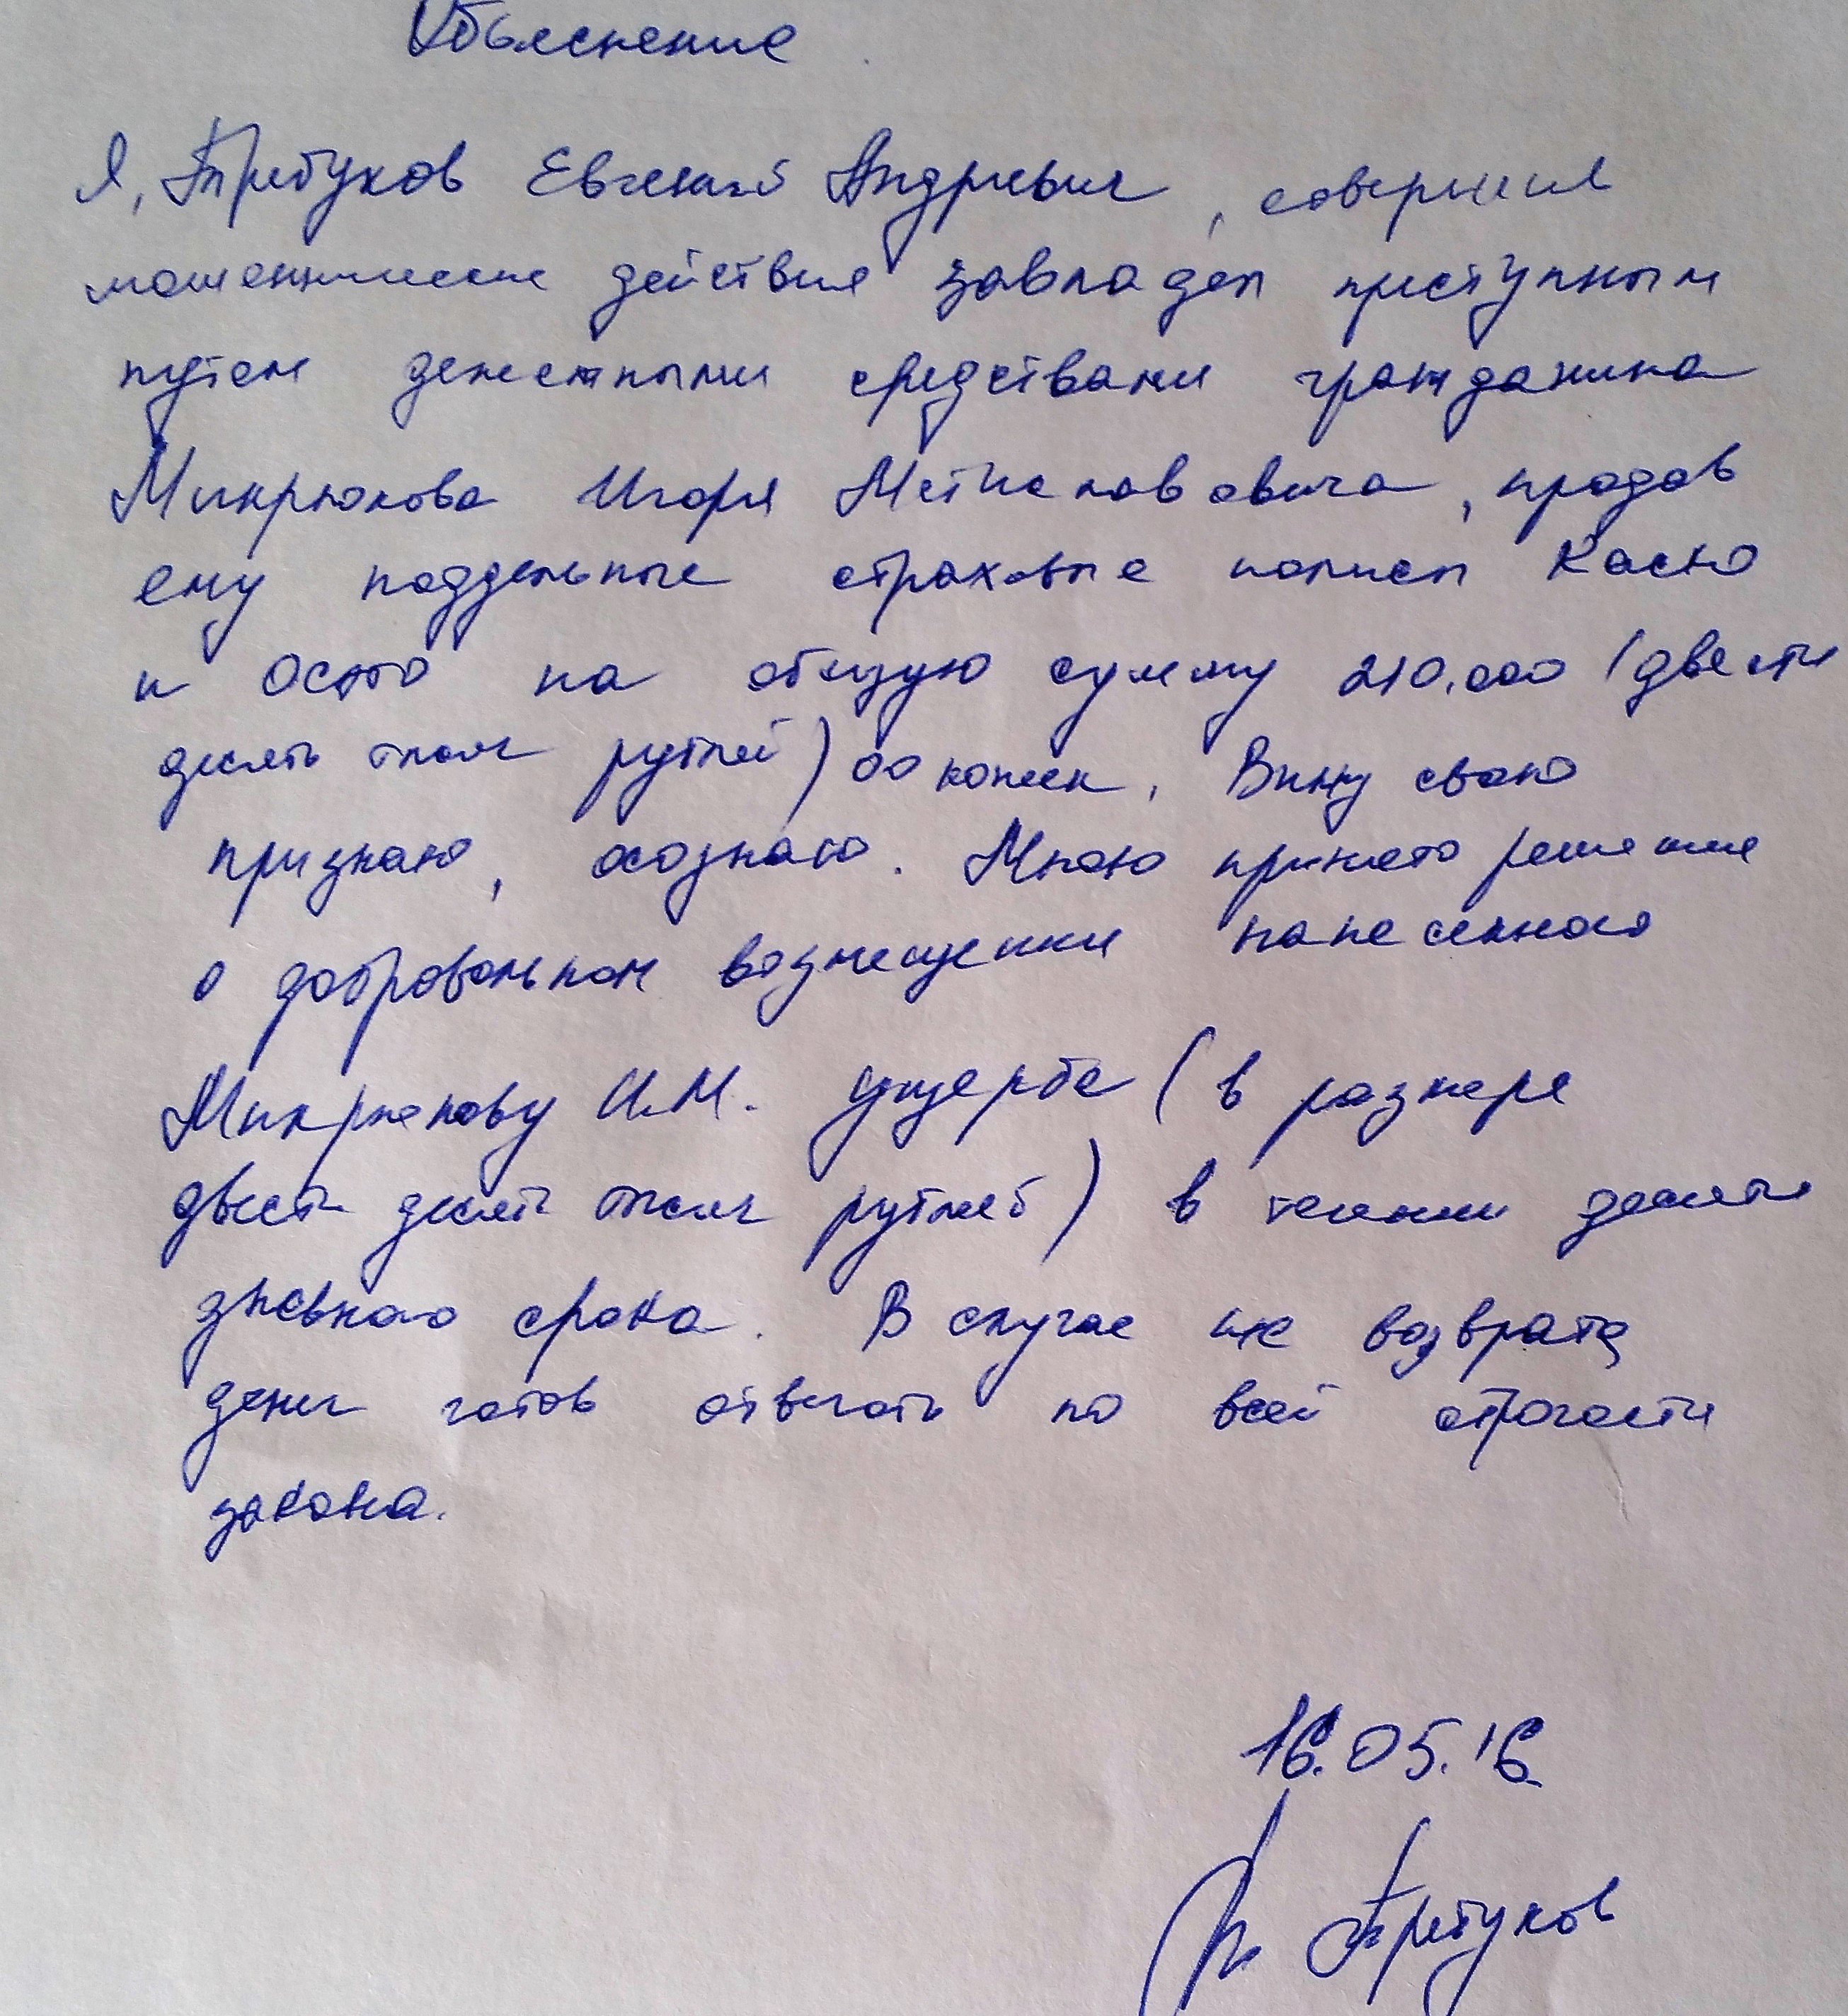 Объяснение
Я, Требуков Евгений Андреевич, совершил
мошеннические действия завладел преступным
путем денежными средствами гражданина
Микрюкова Игоря Мстиславовича, продав
ему поддельные страховые полисы Каско
и Осаго на общую сумму 210.000 (двести
десять тысяч рублей) 00 копеек. Вину свою
признаю, осознаю. Мною принято решение
о добровольном возмещении нанесенного
Микрюкову И.М. ущерба (в размере
двести десять тысяч рублей) в течении десяти
дневного срока. В случае не возврата
денег готов отвечать по всей строгости
закона.
16.05.16
Требуков